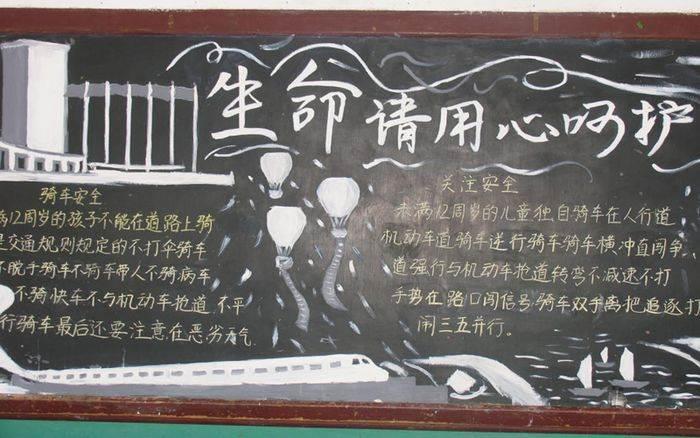 生命请用心呵护
骑车安全
满12周岁的孩子不能在道路上骑
交通规则规定的不打伞骑车
不脱手骑车不骑车带人不骑病车
不骑快车不与机动车抢道 不平
行骑车最后还要注意在恶劣天气
关注安全
未满12周岁的儿童独自骑车在人行道
机动车道骑车逆行骑车骑车横冲直闯争
道强行与机动车抢道转弯不减速不打
手势在路口闯信号骑车双手离把追逐打
闹三五并行。